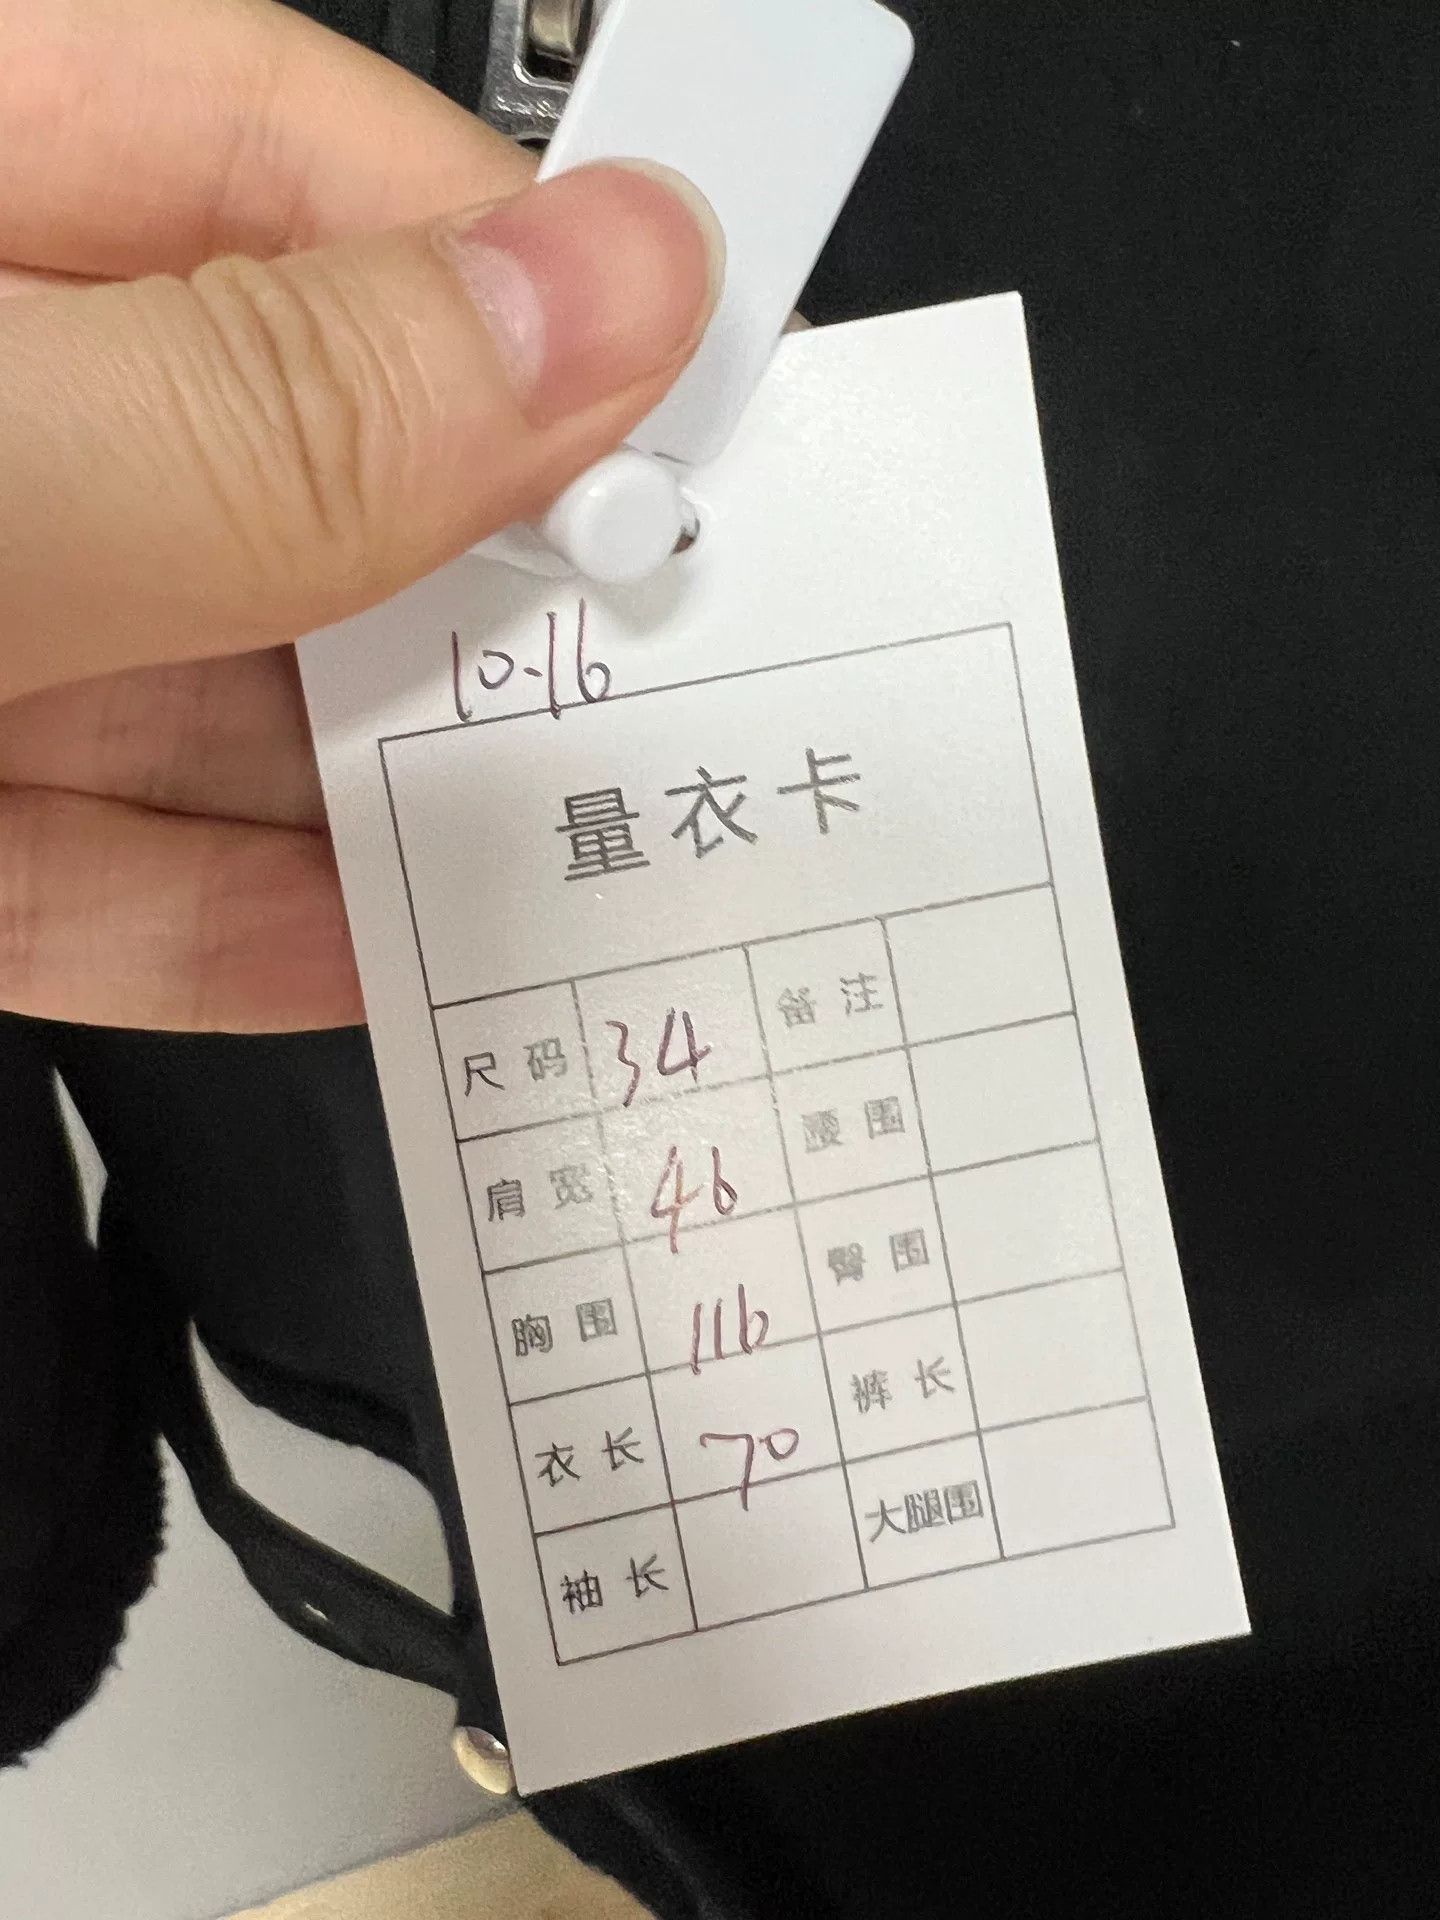 10-16
量衣卡
尺码 34 备注
肩宽 46 腰围
胸围 116 臀围
衣长 70 裤长
袖长 大腿围